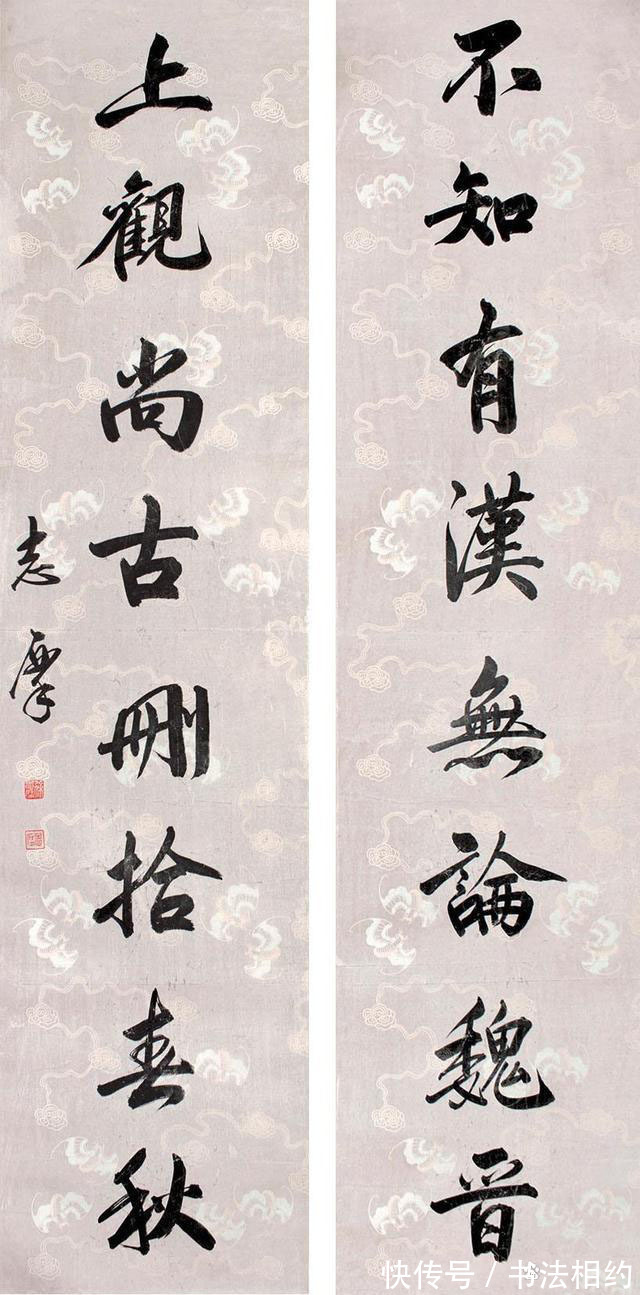 不知有漢無論魏晋
上觀尚古刪拾春秋
志摩
快传号 / 书法相约